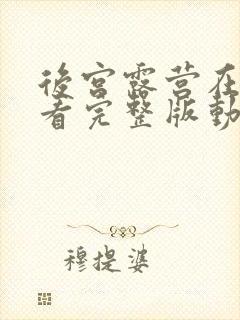 後宮露营在
看完整版動
穆提婆